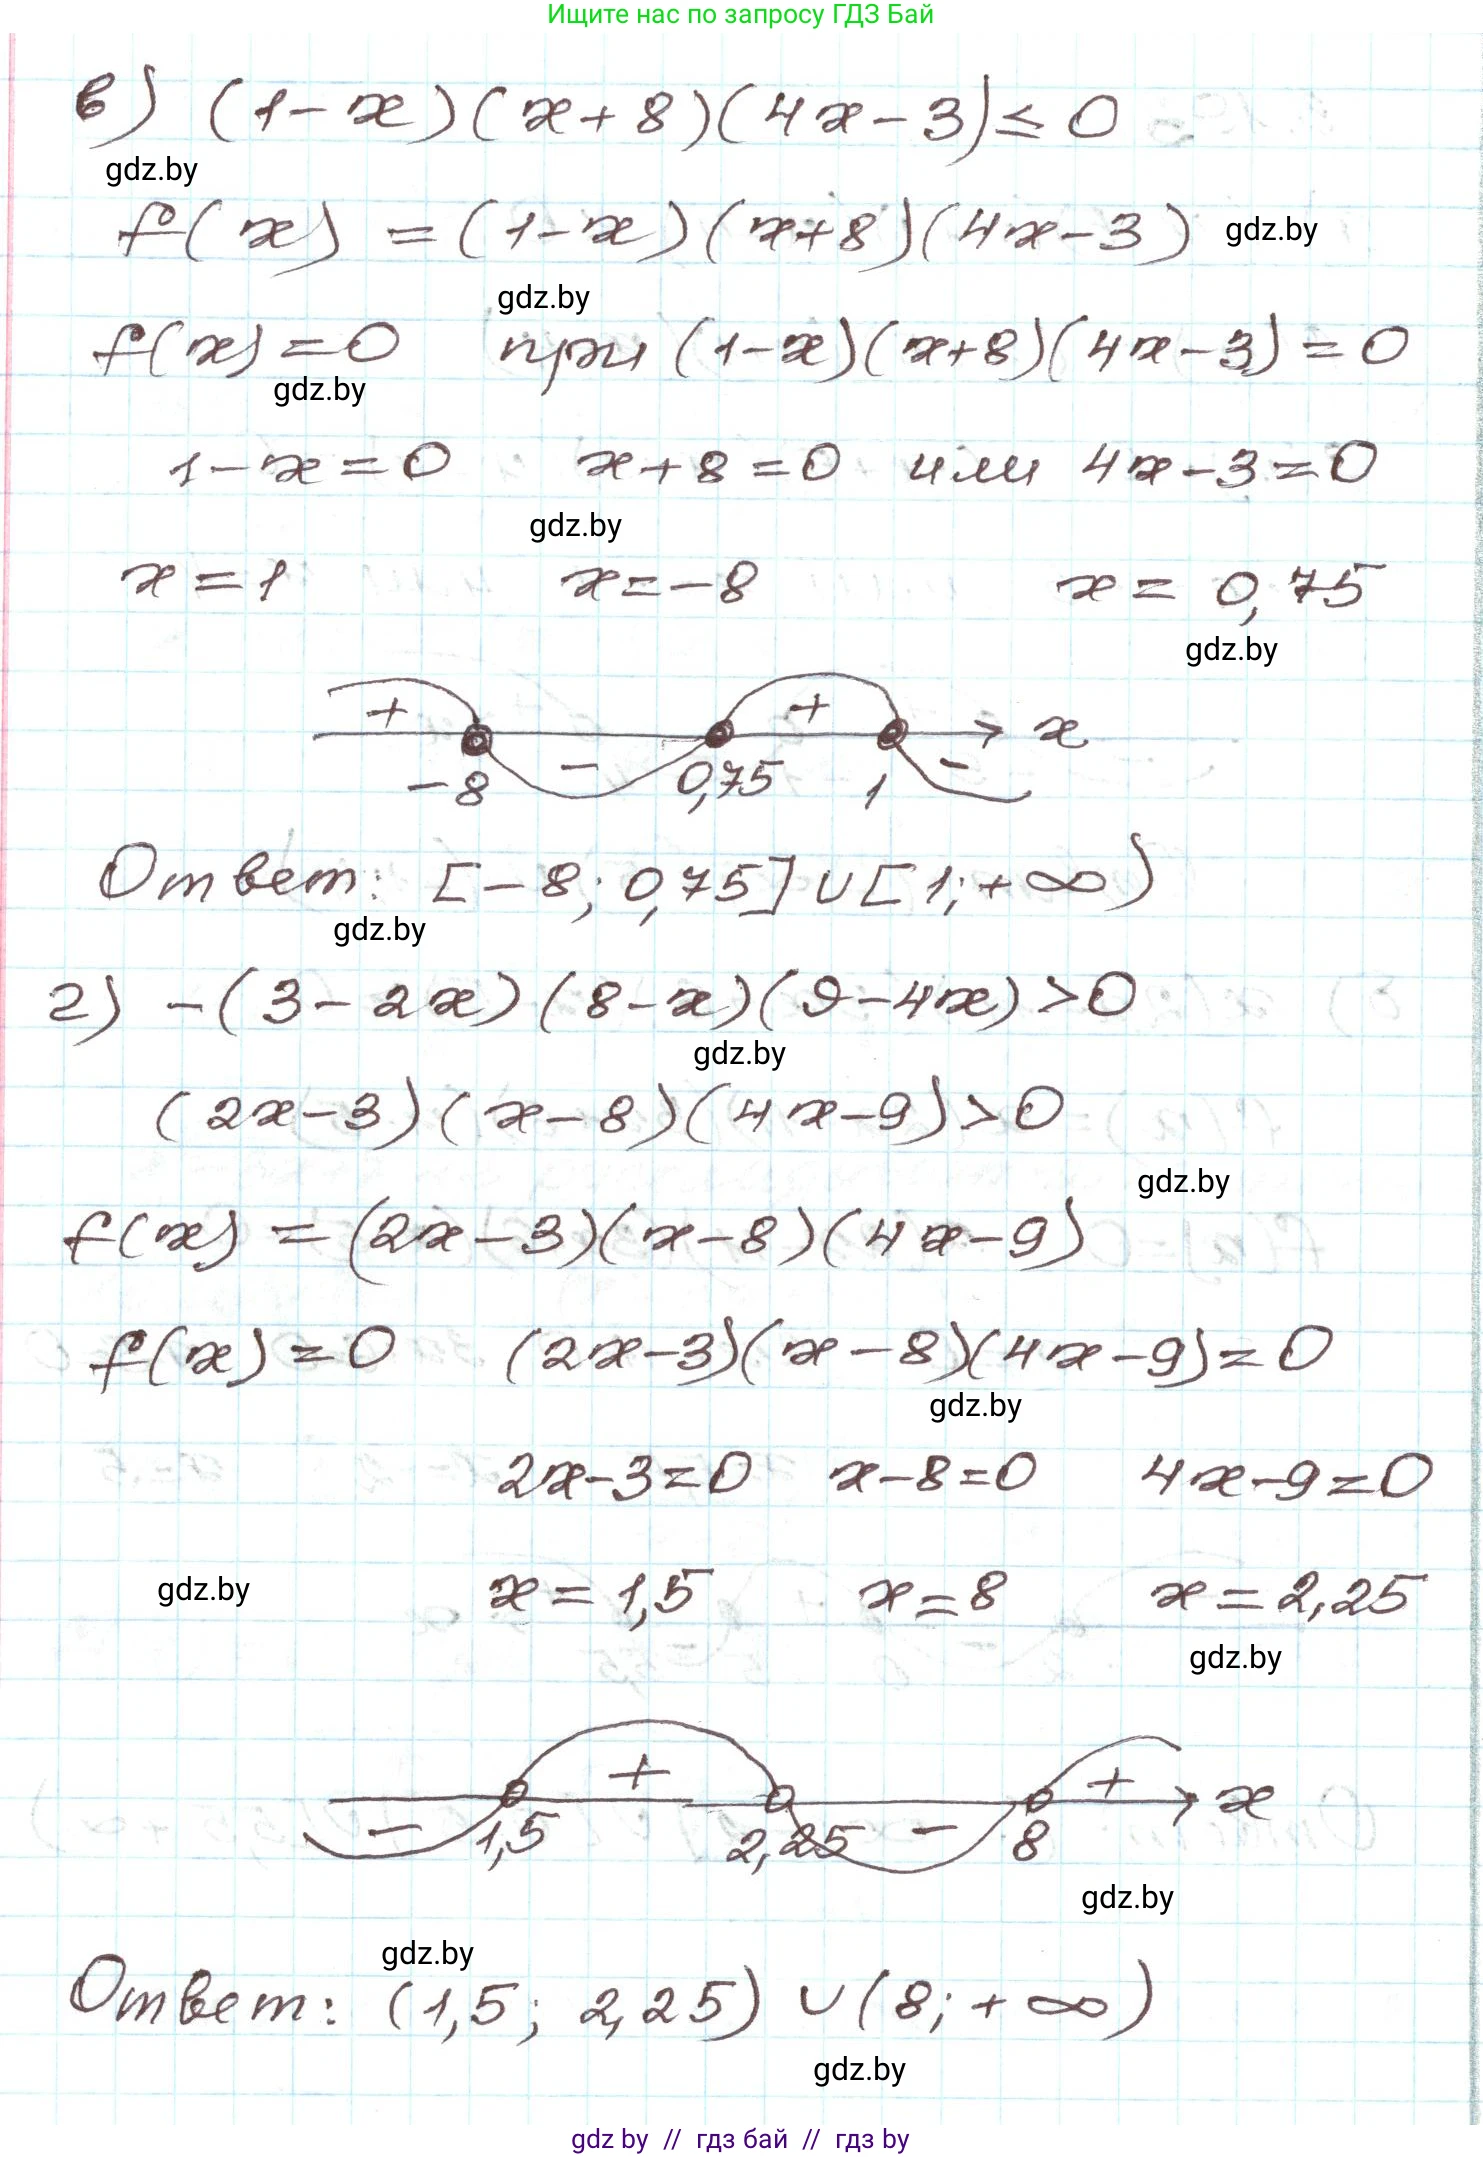 Ищите нас по запросу ГДЗ Бай
в) (1-x)(x+8)(4x-3)≤0
gdz.by
f(x) = (1-x)(x+8)(4x-3) gdz.by
gdz.by
f(x)=0 при (1-x)(x+8)(4x-3)=0
gdz.by
1-x=0 x+8=0 или 4x-3=0
gdz.by
x=1 x=-8 x= 0,75
gdz.by
+ - + - x
-8 0,75 1
Ответ: [-8; 0,75]∪[1;+∞)
gdz.by
г) -(3-2x)(8-x)(9-4x)>0
gdz.by
(2x-3)(x-8)(4x-9)>0
gdz.by
f(x) =(2x-3)(x-8)(4x-9)
f(x)=0 (2x-3)(x-8)(4x-9)=0
gdz.by
2x-3=0 x-8=0 4x-9=0
gdz.by x=1,5 x=8 x=2,25
gdz.by
- + - + x
1,5 2,25 8
gdz.by
gdz.by
Ответ: (1,5; 2,25) ∪(8;+∞)
gdz.by
gdz by // гдз бай // гдз by